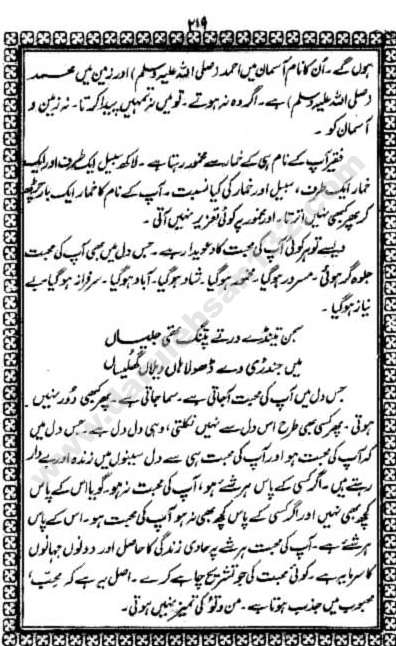 ۲۱۹
ہوں گے۔ اُن کا نام آسمان میں احمد (صلی اللہ علیہ وسلم) اور زمین میں محمد
(صلی اللہ علیہ وسلم) ہے۔ اگر وہ نہ ہوتے۔ تو میں نہ تمہیں پیدا کرتا۔ نہ زمین و
آسمان کو۔
فقیر آپ کے نام ہی کے خمار سے مخمور رہتا ہے۔ لاکھ سبیل ایک طرف اور ایک
خمار ایک طرف، سبیل اور خمار کی کیا نسبت۔ آپ کے نام کا خمار ایک بار چڑھ
کر پھر کبھی نہیں اترتا۔ اور مخمور پر کوئی تعزیر نہیں آتی۔
ویسے تو ہر کوئی آپ کی محبت کا دعویدار ہے۔ جس دل میں بھی آپ کی محبت
جلوہ گر ہوئی۔ مسرور ہو گیا۔ مخمور ہو گیا۔ شاد ہو گیا۔ آباد ہو گیا۔ سرفراز ہو گیا۔ بے
نیاز ہو گیا۔
سجن تینڈے درتے پتنگ جلیاں
میں جندڑی دے ڈھولا
جس دل میں آپ کی محبت آ جاتی ہے۔ سما جاتی ہے۔ پھر کبھی دُور نہیں
ہوتی۔ پھر کسی بھی طرح اس دل سے نہیں نکلتی، وہی دل دل ہے۔ جس دل میں
کہ آپ کی محبت ہو اور آپ کی محبت ہی سے دل سینوں میں زندہ اور بےدار
رہتے ہیں۔ اگر کسی کے پاس ہر شئے ہو، آپ کی محبت نہ ہو۔ گویا اس کے پاس
کچھ بھی نہیں اور اگر کسی کے پاس کچھ بھی نہ ہو آپ کی محبت ہو۔ اس کے پاس
ہر شئے ہے۔ آپ کی محبت ہر شئے پر حاوی زندگی کا حاصل اور دونوں جہانوں
کا سرمایہ ہے۔ کوئی محبت کی جو تشریح چاہے کرے۔ اصل یہ ہے کہ محب،
محبوب میں جذب ہوتا ہے۔ من و تُو کی تمیز نہیں ہوتی۔